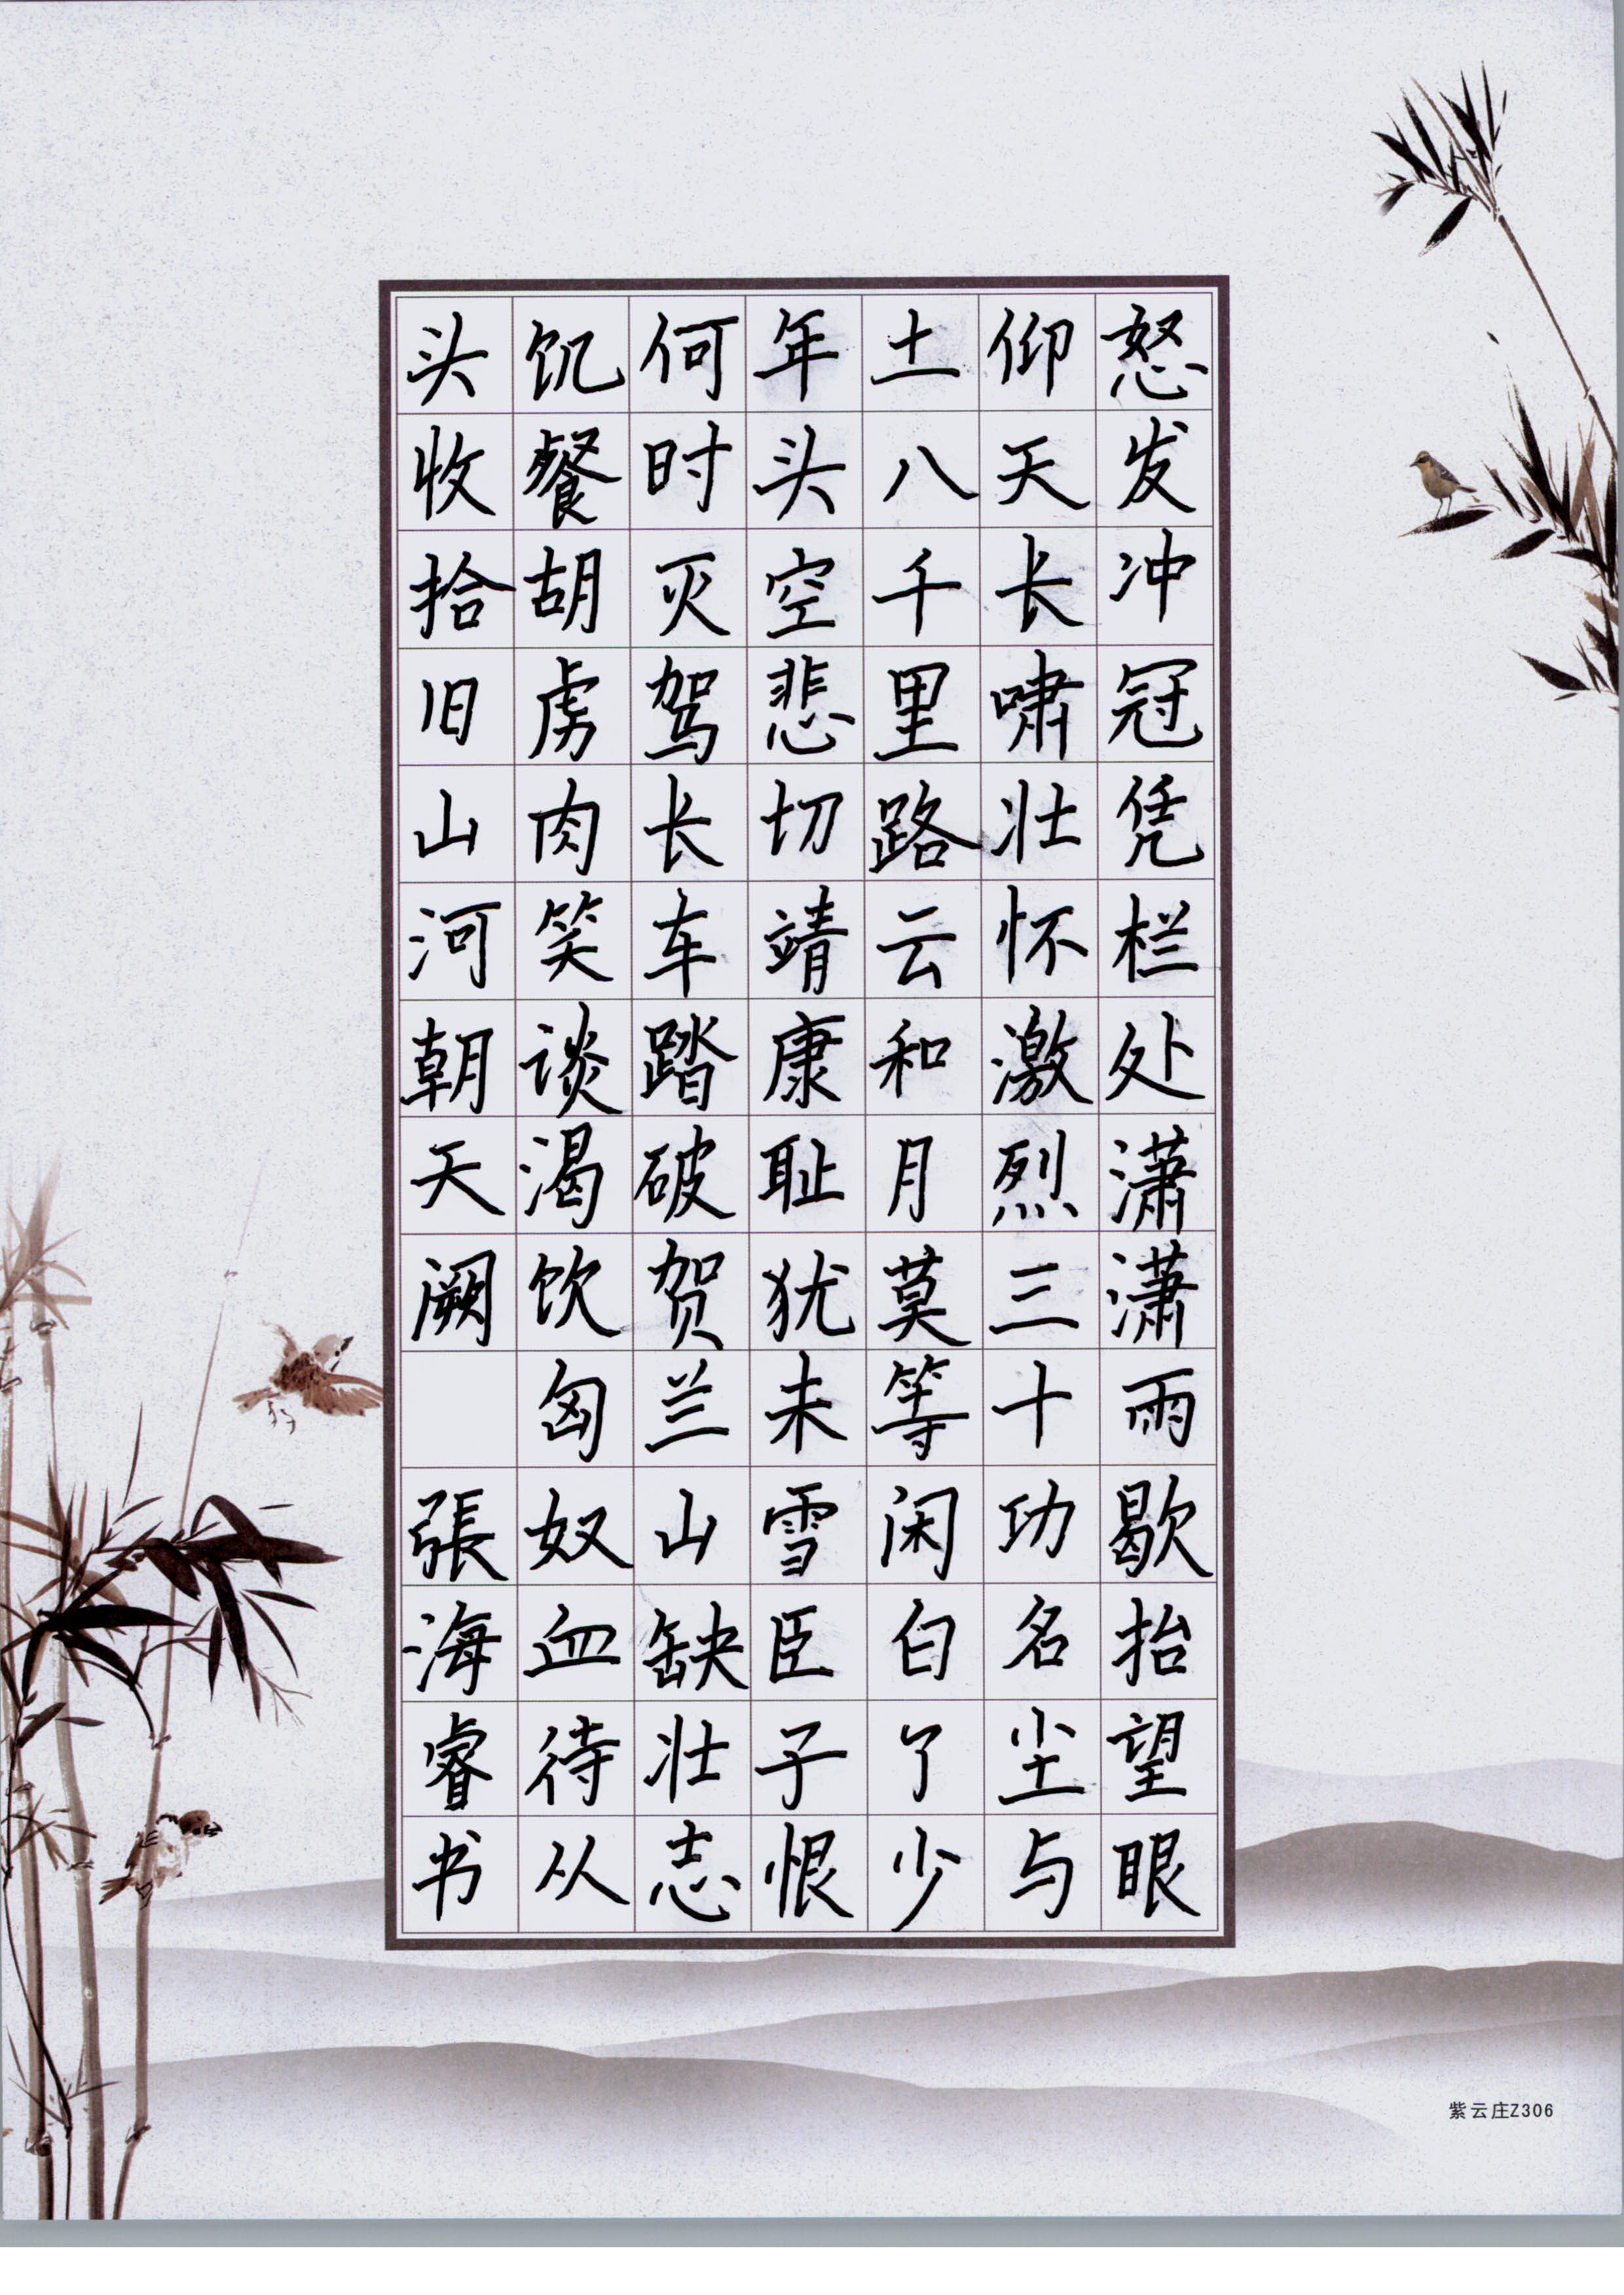 怒发冲冠凭栏处潇潇雨歇抬望眼
仰天长啸壮怀激烈三十功名尘与
土八千里路云和月莫等闲白了少
年头空悲切靖康耻犹未雪臣子恨
何时灭驾长车踏破贺兰山缺壮志
饥餐胡虏肉笑谈渴饮匈奴血待从
头收拾旧山河朝天阙 張海睿书
紫云庄Z306